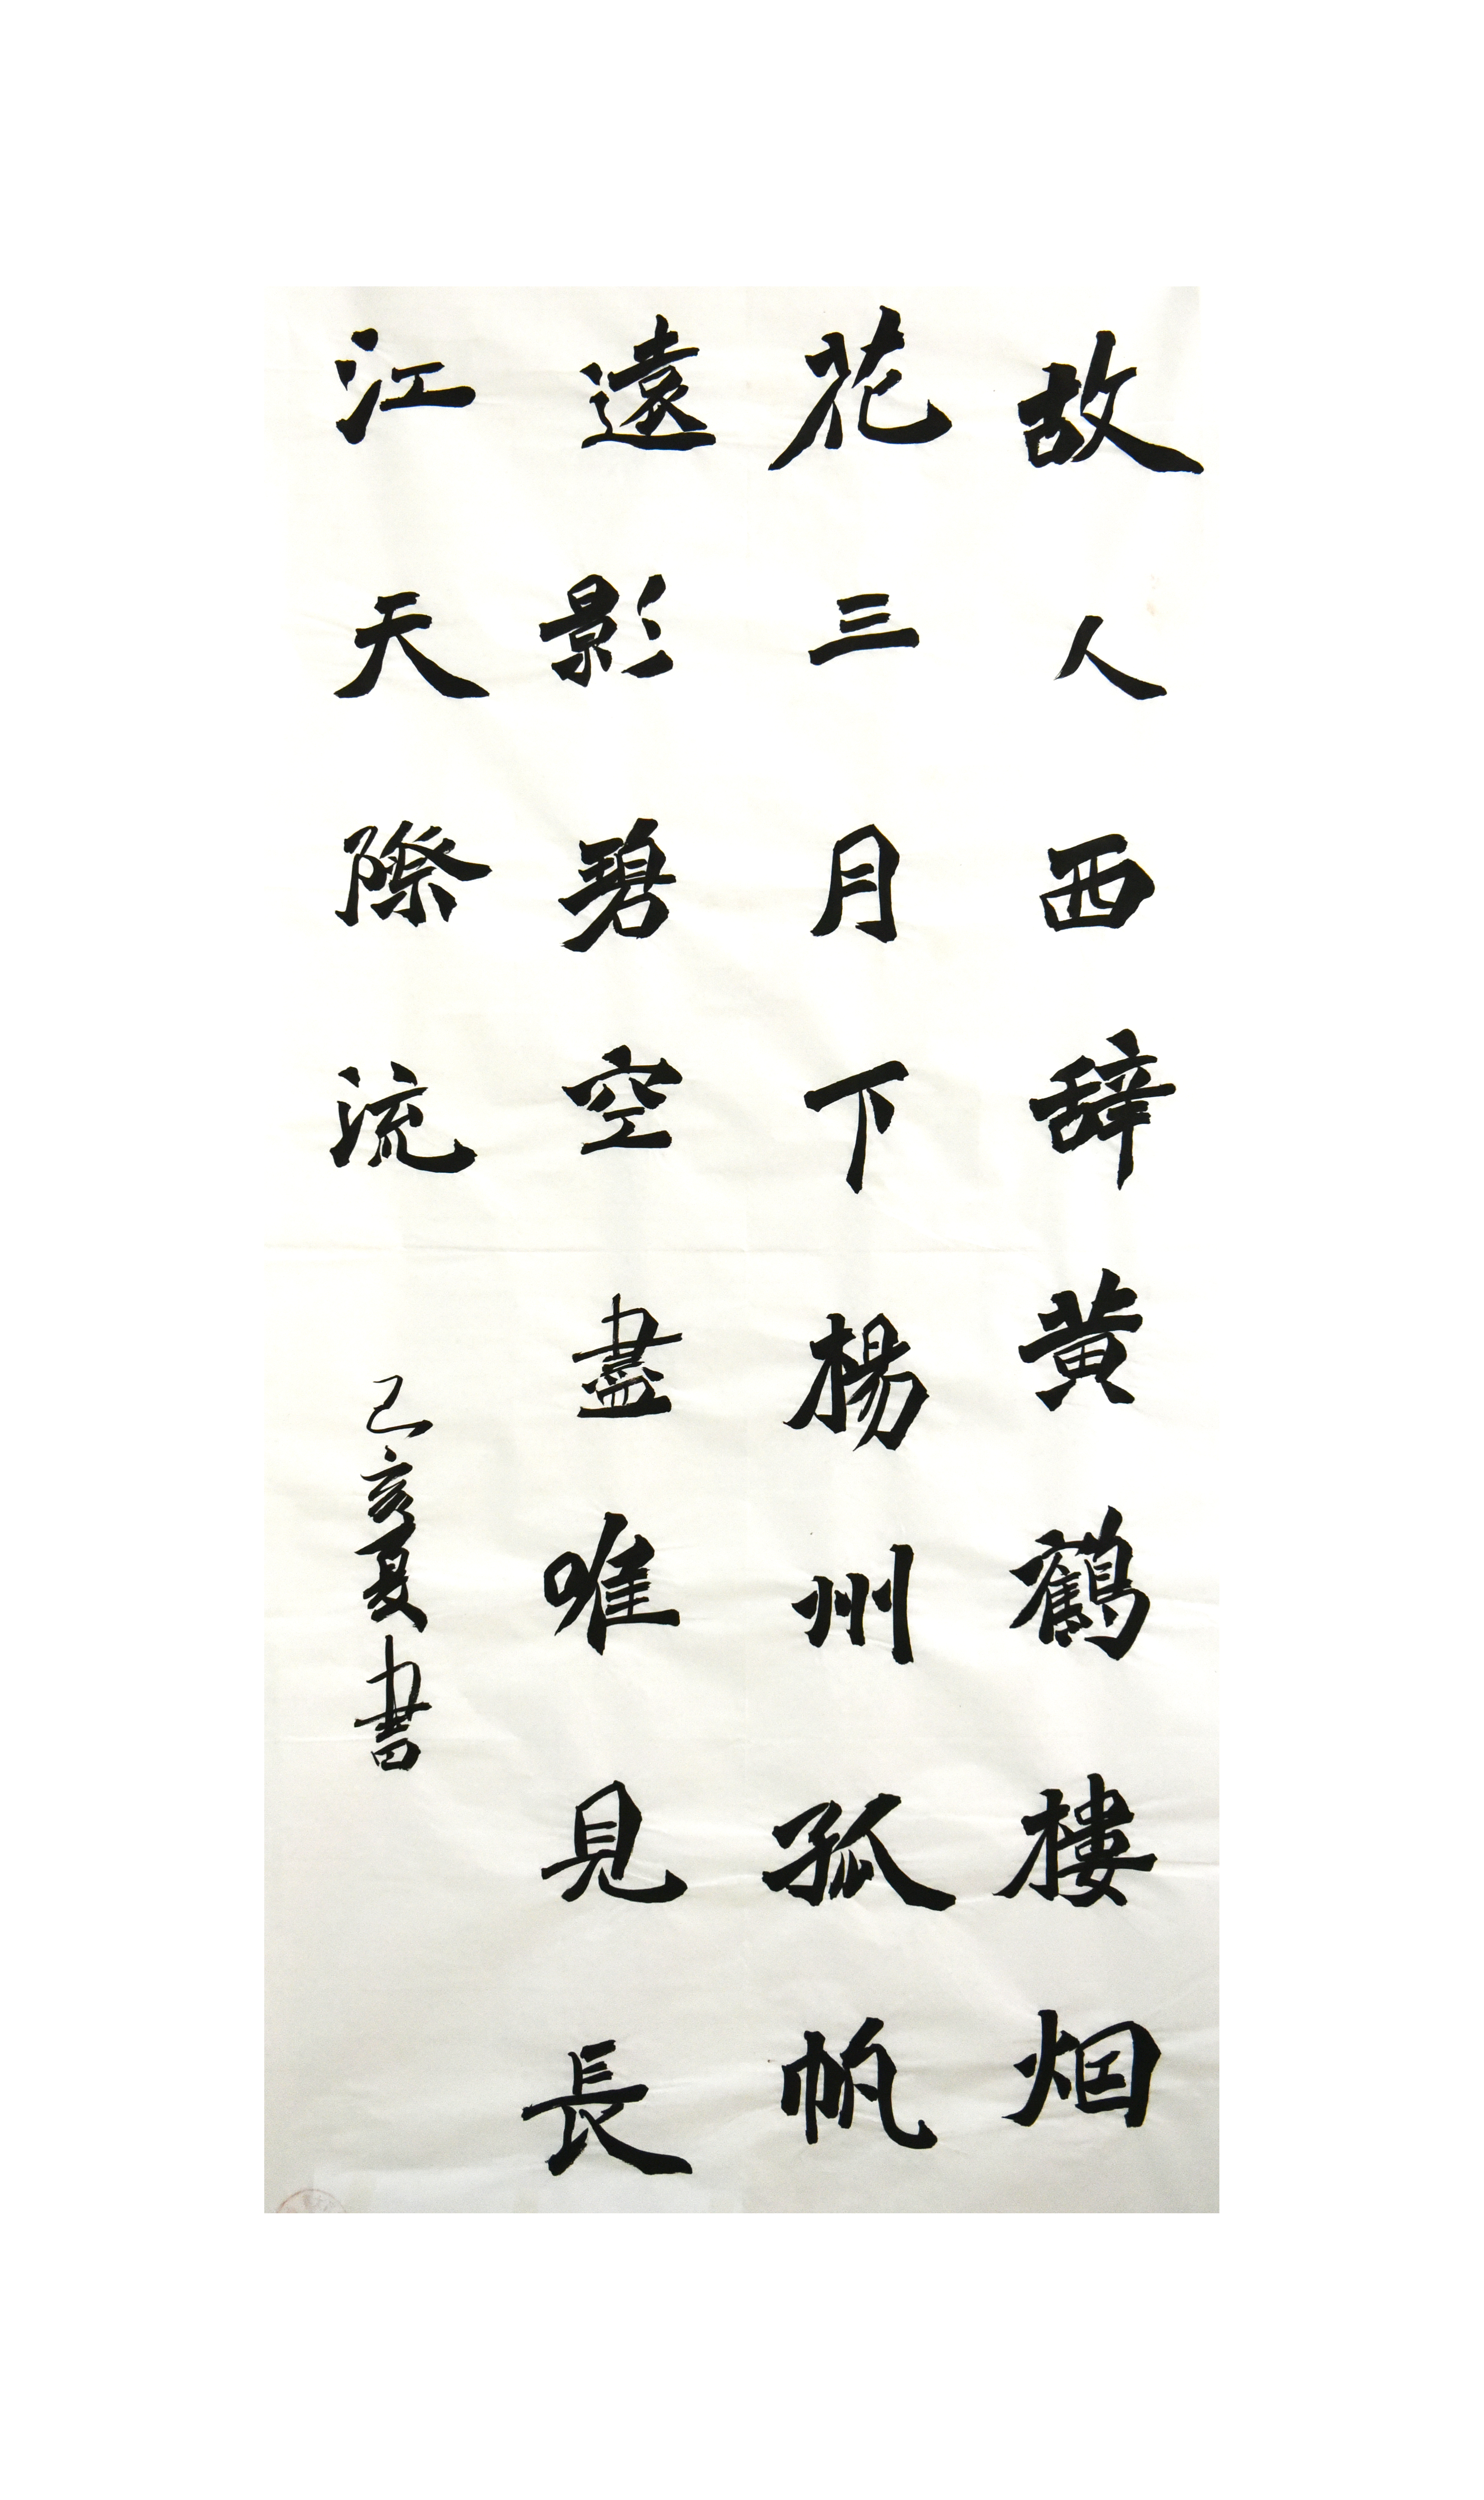 故人西辞黄鶴樓烟
花三月下楊州孤帆
遠影碧空盡唯見長
江天際流
己亥夏書